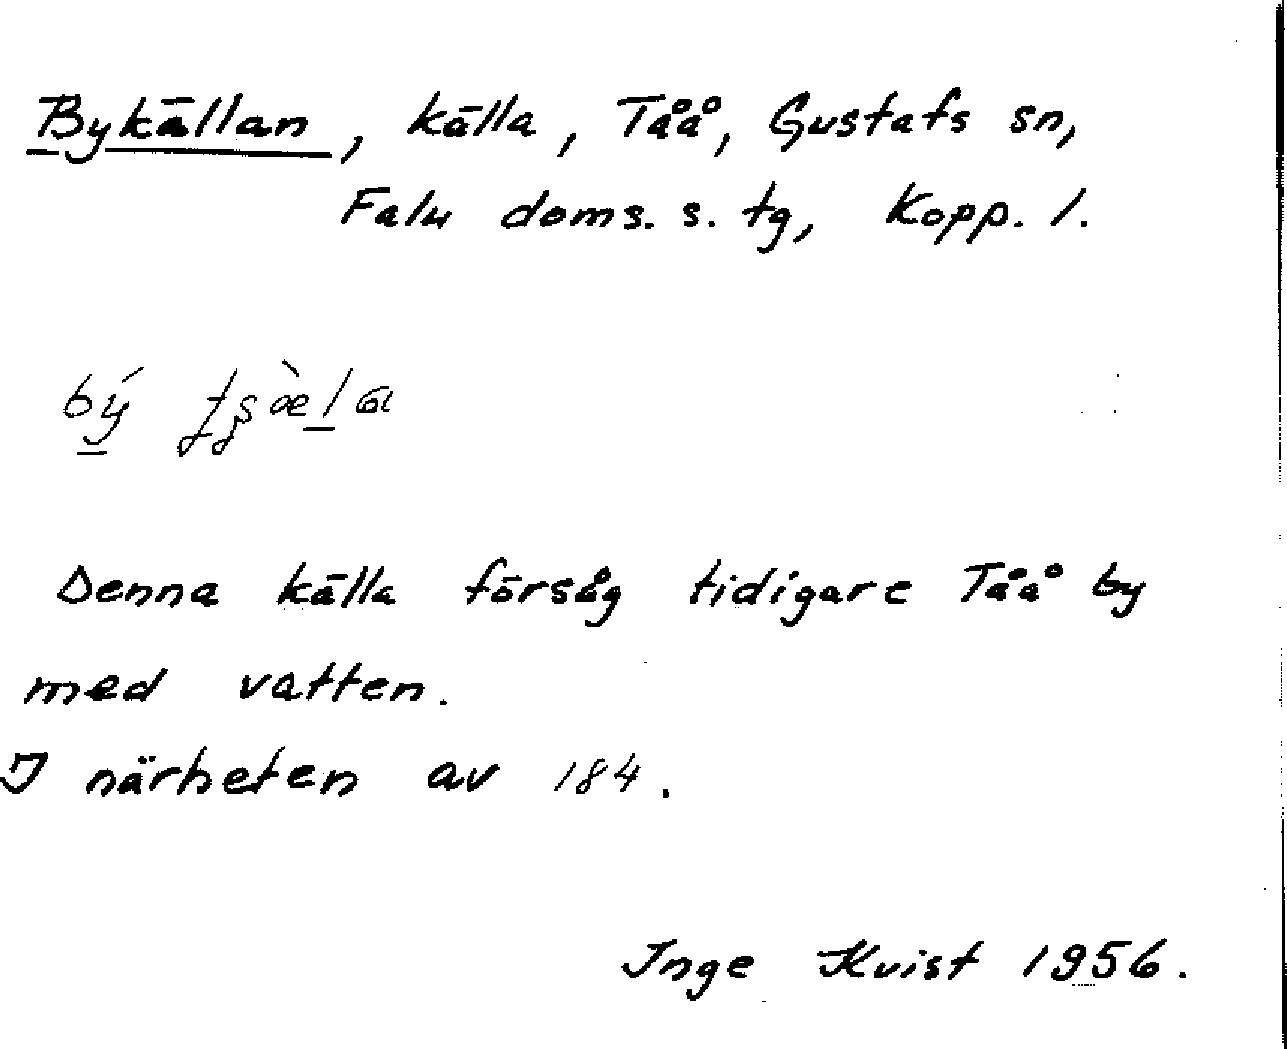 Bykällan, källa, Tåå, Gustafs sn,
Falu doms. s. tg, Kopp. l.
Denna källa försåg tidigare Tåå by
med vatten.
I närheten av 184.
Inge Kvist 1956.